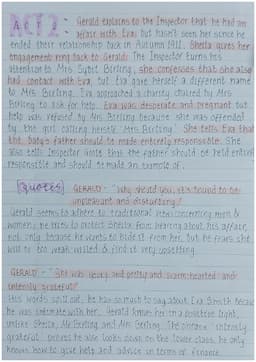 ACT 2: - Gerald explains to the Inspector that he had an
affair with Eva but hasn't seen her since he
ended their relationship back in Autumn 1911. Sheila gives her
engagement ring back to Gerald. The Inspector turns his
attention to Mrs. Sybil Birling, she confesses that she also
had contact with Eva, but Eva gave herself a different name
to Mrs. Birling. Eva approached a charity chaired by Mrs
Birling to ask for help. Eva was desperate and pregnant but
help was refused by Mrs Birling because she was offended
by the girl calling herself 'Mrs Birling'. She tells Eva that
the baby's father should be made entirely responsible. She
also tells Inspector Goole that the father should be held entirely
responsible and should be made an example of.
Quotes GERALD - "why should you, it's bound to be
unpleasant and disturbing"
Gerald seems to adhere to traditional views concerning men &
women; he tries to protect Sheila from hearing about his affair,
not only because he wants to hide it from her, but he fears she
will be too weak willed & find it very upsetting.
GERALD - "She was young and pretty and warm hearted and
intensely grateful"
His words spill out, he has so much to say about Eva Smith because
he was intimate with her. Gerald knew her in a positive light,
unlike Sheila, Mr Birling and Mrs Birling. The phrase "intensely
grateful" proves he also looks down on the lower class, he only
knows how to give help and advice in terms of finance.